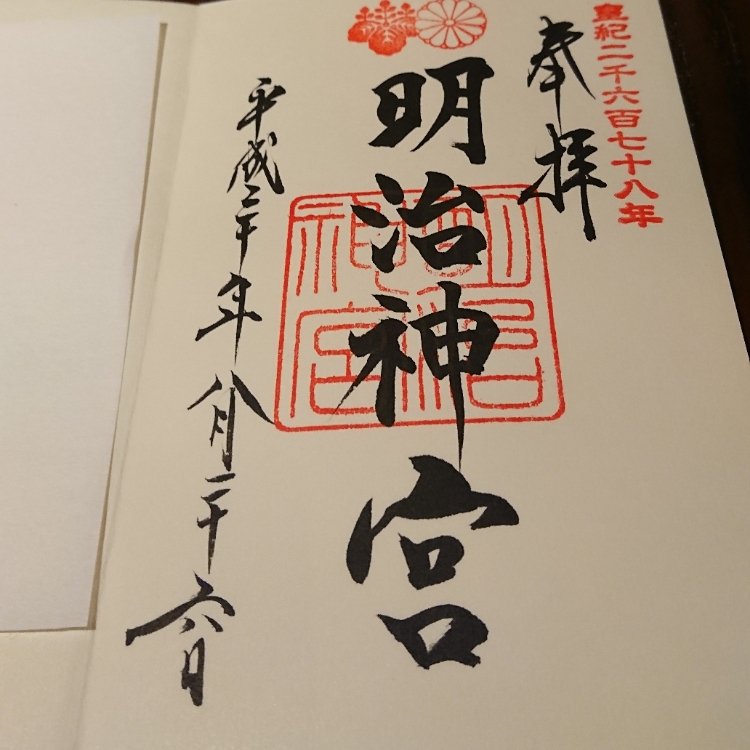 皇紀二千六百七十八年
奉拝
明治神宮
明治
神宮
平成三十年八月二十六日